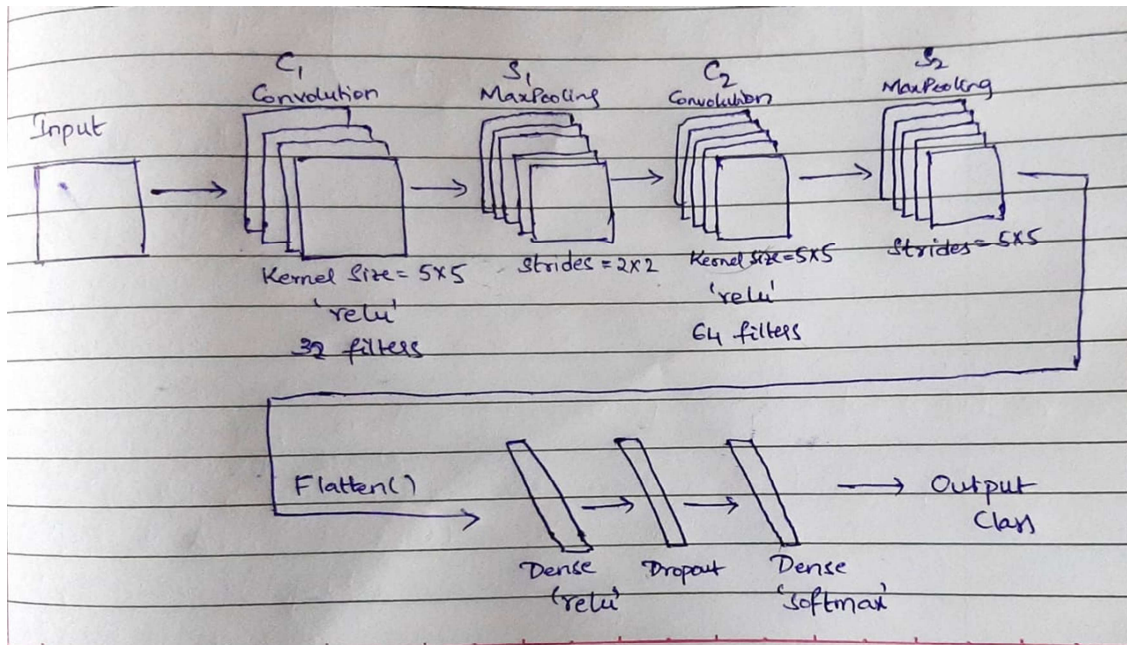 Input
C1
Convolution
Kernel Size = 5×5
'relu'
32 filters
S1
MaxPooling
Strides = 2×2
C2
Convolution
Kernel Size = 5×5
'relu'
64 filters
S2
MaxPooling
Strides = 5×5
Flatten()
Dense
'relu'
Dropout
Dense
'softmax'
Output
Class